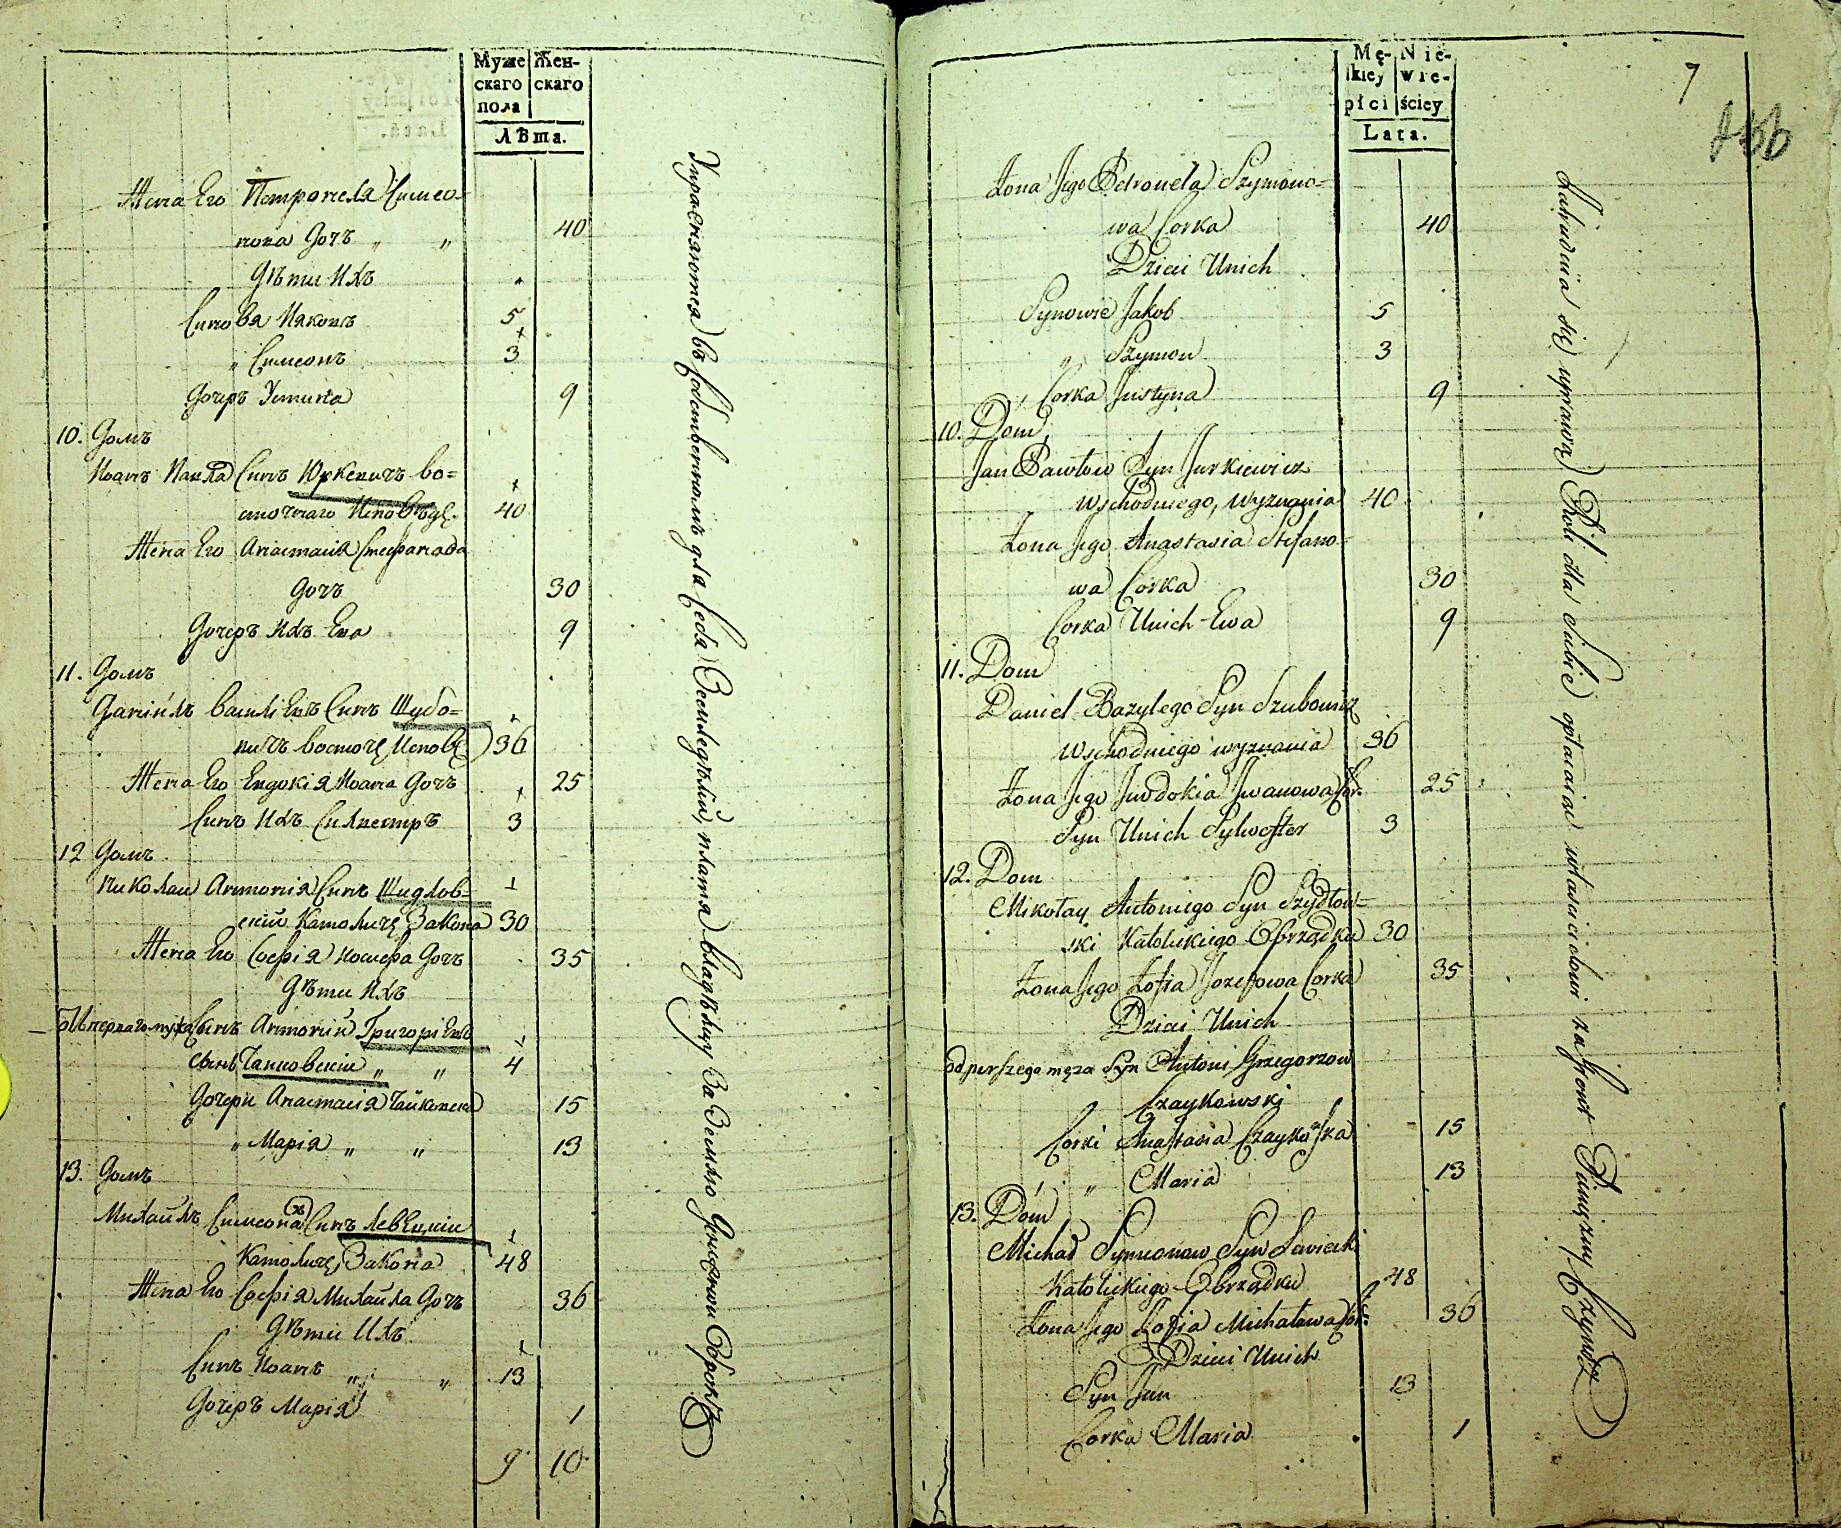 Муже
скаго
пола
Жен-
скаго
Лѣта.
Жена Его Петронеля Симео-
нова Дочь „ „ 40
Дѣти Ихъ
Синовя Іяковъ 5
„ Симеонъ 3
Дочеръ Устина 9
10. Домъ
Іоанъ Павла Синъ Юркевичъ во-
сточнаго Исповѣд. 40
Жена Его Анастасія Стефанова
Дочь 30
Дочеръ Ихъ Ева 9
11. Домъ
Даніилъ Василіевъ Синъ Шубо-
вичъ восточ Исповѣ 36
Жена Его Евдокія Іоана Дочь 25
Синъ Ихъ Силвестръ 3
12 Домъ
Николай Антонія Синъ Шидлов-
скій Католич Закона 30
Жена Его Софія Іосифа Дочь 35
Дѣти Ихъ
Отъ перваго мужа Синъ Антоній Григоріевъ
сынъ Чайковскій „ „ 4
Дочери Анастасія Чайковска 15
„ Марія „ „ 13
13. Домъ
Михаилъ Симеона Синъ Левецкій
Католич Закона 48
Жена Его Софія Михаила Дочь 36
Дѣти Ихъ
Синъ Іоанъ „ „ 13
Дочеръ Марія 1
9 10
Упражняются въ собственномъ для себя Земледѣліи, платя владѣлцу За Землю Денежной Оброкъ
Mę-
skiey
płci
Nie-
wie-
ściey
Lata.
7
Żona Jego Petronela Szymono-
wa Corka 40
Dzieci Unich
Synowie Jakob 5
„ Szymon 3
„ Corka Justyna 9
10. Dom
Jan Pawłow Syn Jurkiewicz
Wschodniego, Wyznania 40
Żona Jego Anastasia Stefano-
wa Corka 30
Corka Unich Ewa 9
11. Dom
Daniel Bazylego Syn Szubowicz
Wschodniego wyznania 36
Żona Jego Juwdokia Jwanowa Cor. 25
Syn Unich Sylwester 3
12. Dom
Mikołay Antoniego Syn Szydłow-
ski Katolickiego Obrządku 30
Żona Jego Zofia Jozefowa Corka 35
Dzieci Unich
od pierszego męza Syn Antoni Grzegorzow
Czaykowski
Corki Anastasia Czaykoska 15
„ „ Maria 13
13. Dom
Michał Symeonow Syn Lewiecki
Katolickiego Obrządku 48
Żona Jego Zofia Michałowa Cor: 36
Dzieci Unich
Syn Jan 13
Corka Maria 1
Zatrudnia się uprawą Roli dla siebie opłacaiąc właścicielowi za Grunt Pienięzny Czynsz